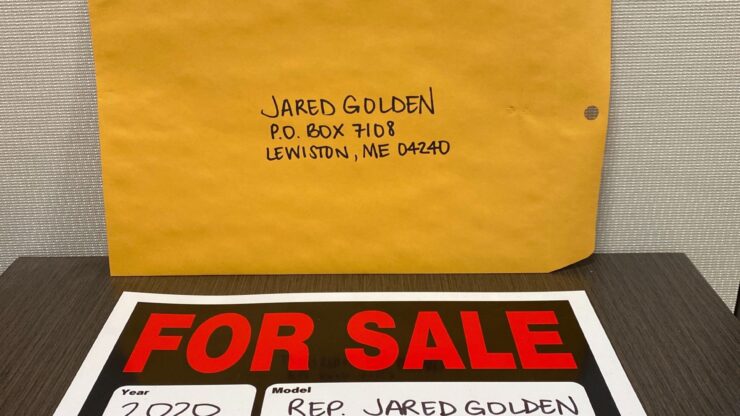 JARED GOLDEN
P.O. BOX 7108
LEWISTON, ME 04240
FOR SALE
Year
2020
Model
REP. JARED GOLDEN